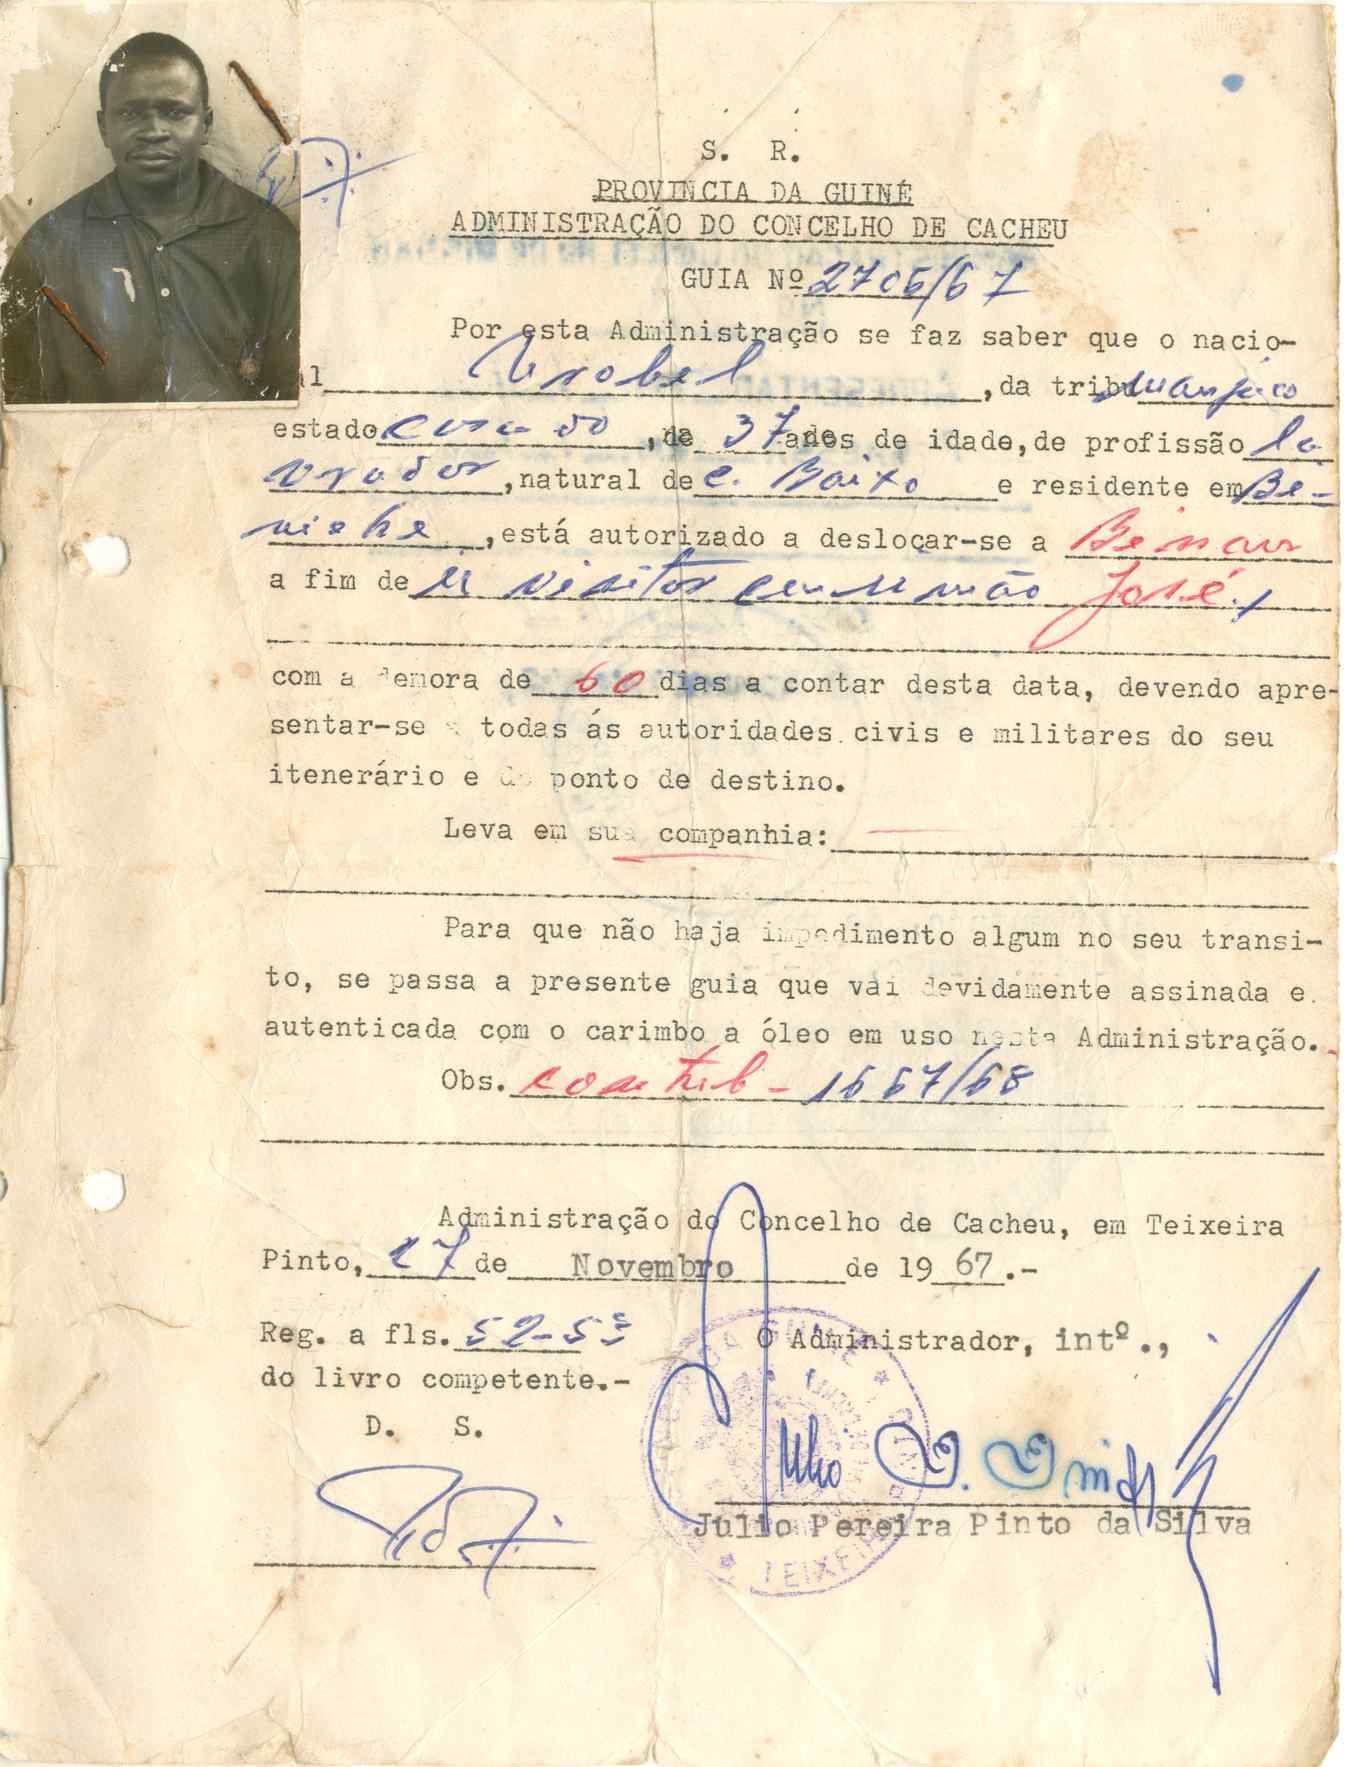 S. R.
PROVINCIA DA GUINÉ
ADMINISTRAÇÃO DO CONCELHO DE CACHEU
GUIA Nº 2705/67
Por esta Administração se faz saber que o nacio-
al Urobel, da tribu manjaco
estado casado, de 37 anos de idade, de profissão la
vrador, natural de C. Baixo e residente em Be-
, está autorizado a deslocar-se a Binar
a fim de visitar seu irmão José,
com a demora de 60 dias a contar desta data, devendo apre-
sentar-se a todas ás autoridades civis e militares do seu
itenerário e do ponto de destino.
Leva em sua companhia:
Para que não haja impedimento algum no seu transi-
to, se passa a presente guia que vai devidamente assinada e
autenticada com o carimbo a óleo em uso nesta Administração.
Obs. contrib - 1667/68
Administração do Concelho de Cacheu, em Teixeira
Pinto, 27 de Novembro de 1967.-
Reg. a fls. 52-53 O Administrador, intº.,
do livro competente.-
D. S.
Júlio Pereira Pinto da Silva
GUINÉ
TEIXEIRA